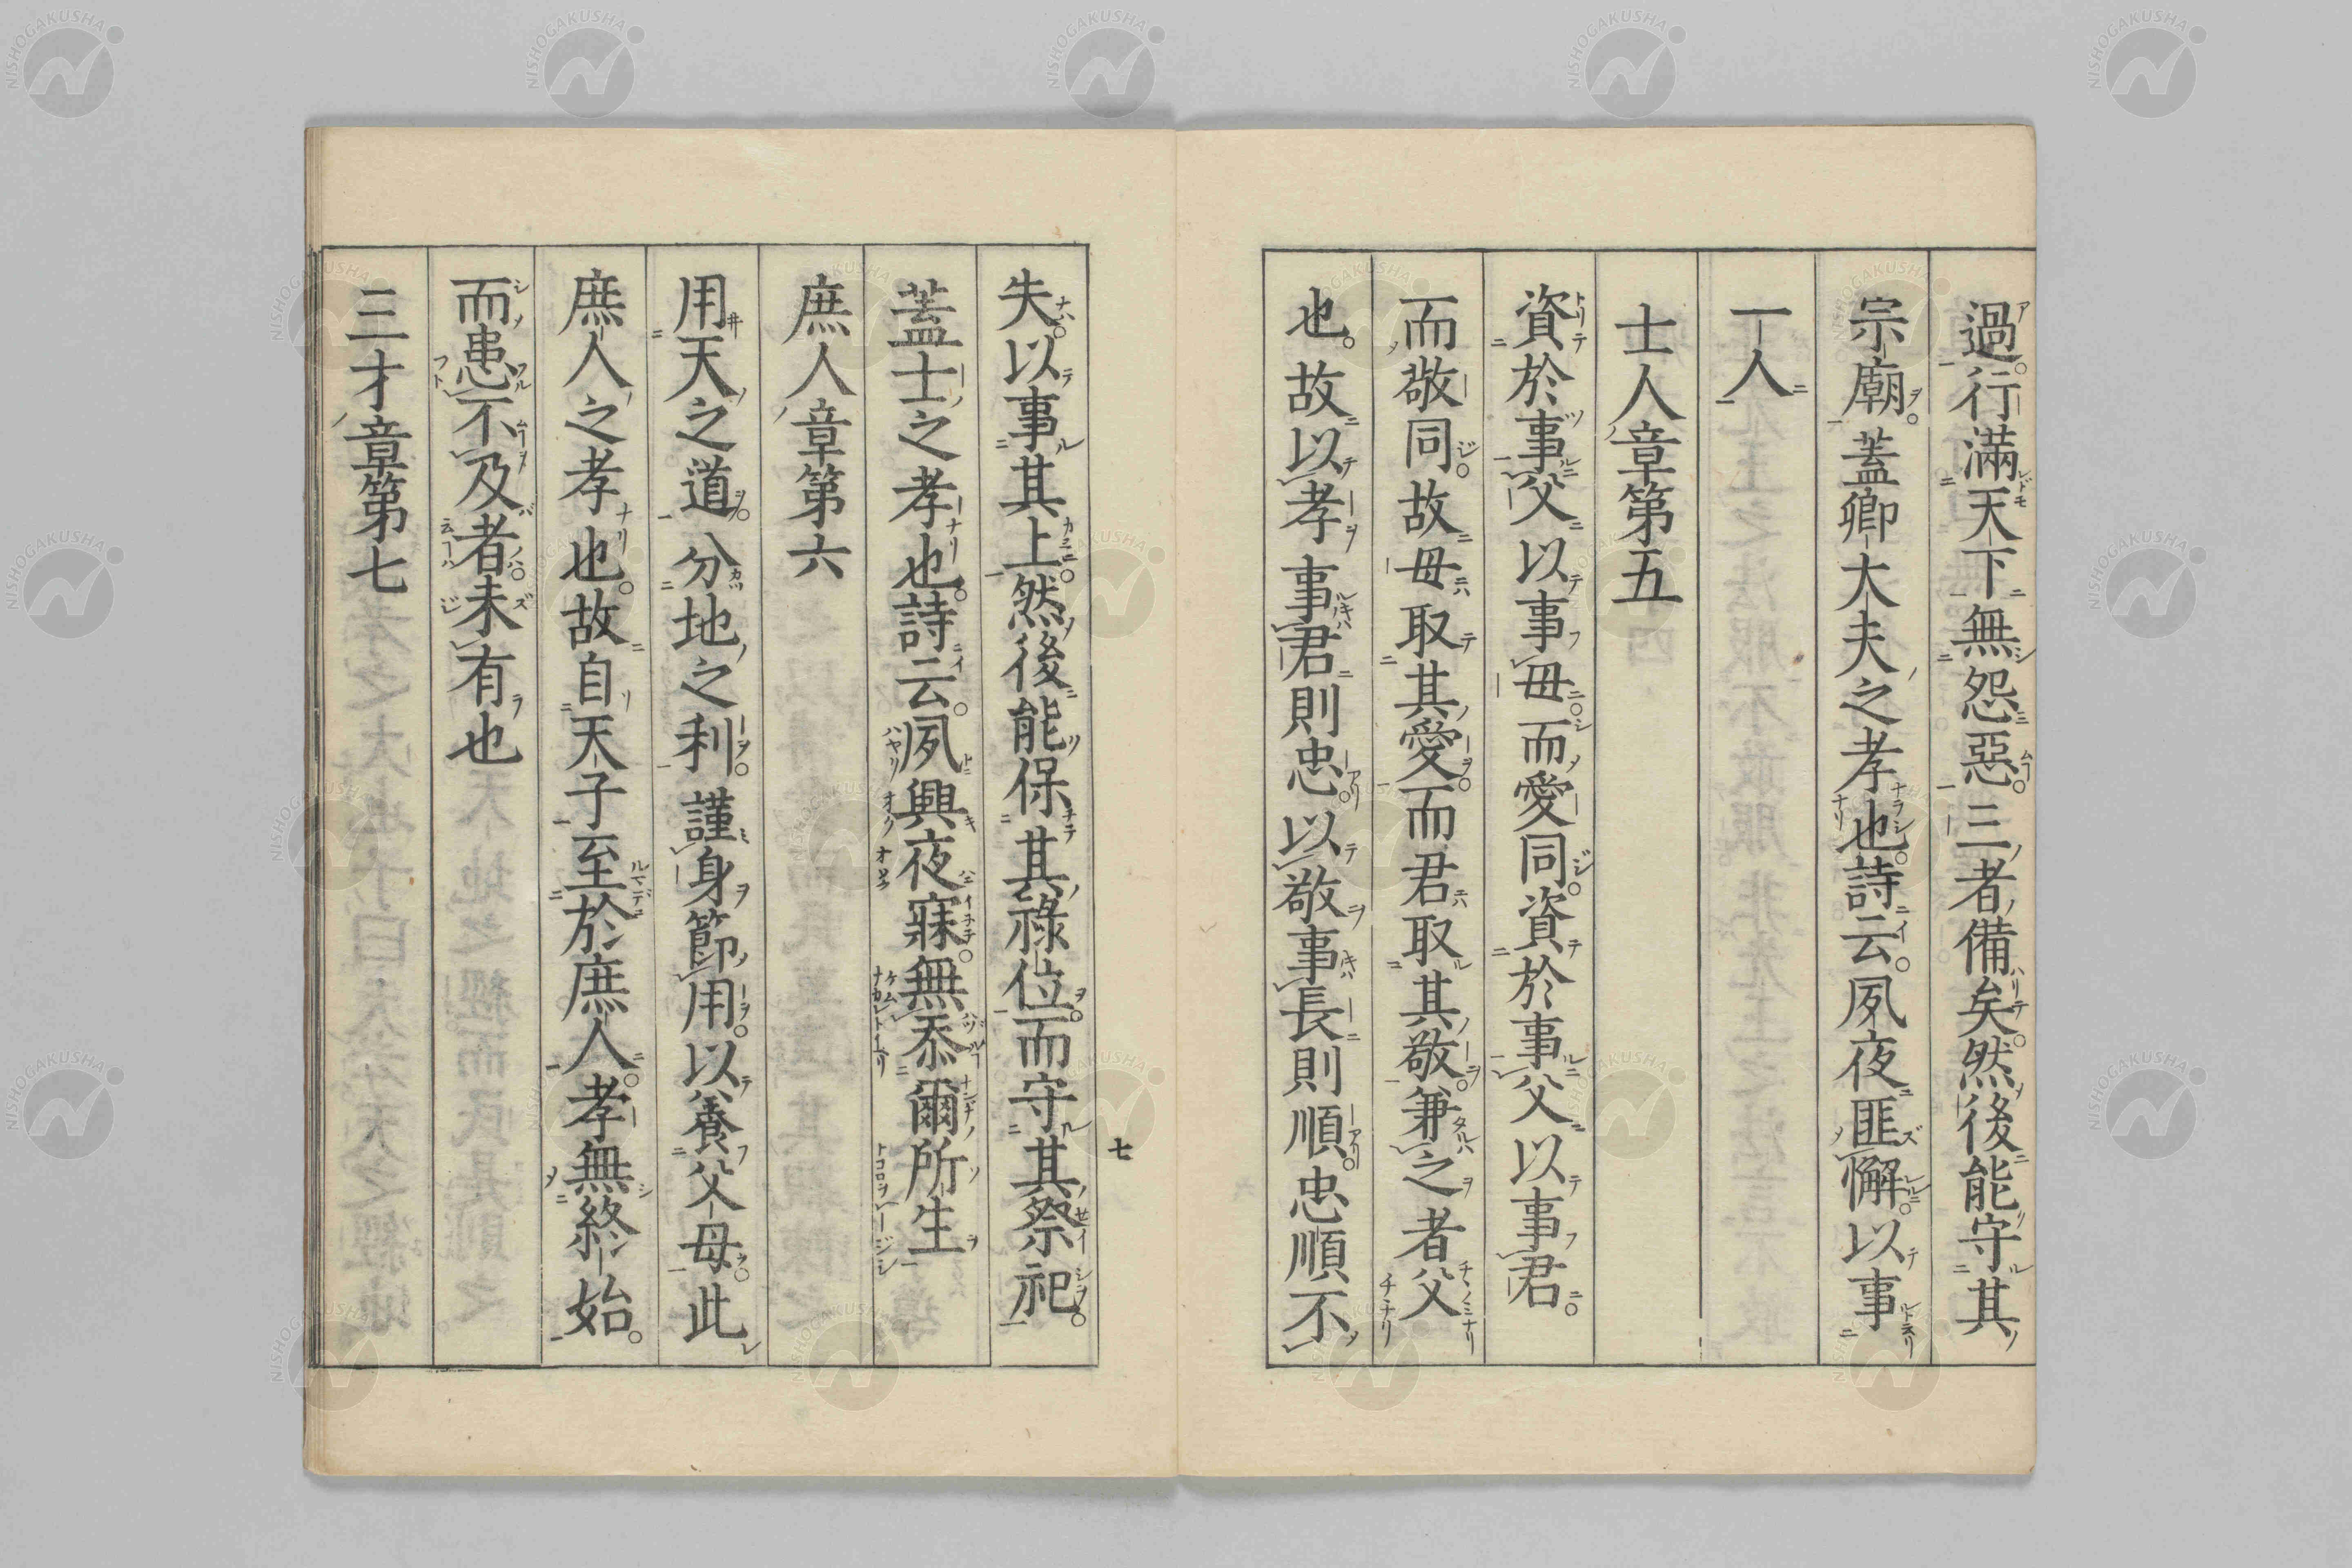 過行滿天下無怨惡三者備矣然後能守其
宗廟蓋卿大夫之孝也詩云夙夜匪懈以事
一人
士人章第五
資於事父以事母而愛同資於事父以事君
而敬同故母取其愛而君取其敬兼之者父
也故以孝事君則忠以敬事長則順忠順不
七
失以事其上然後能保其祿位而守其祭祀
蓋士之孝也詩云夙興夜寐無忝爾所生
庶人章第六
用天之道分地之利謹身節用以養父母此
庶人之孝也故自天子至於庶人孝無終始
而患不及者未有也
三才章第七